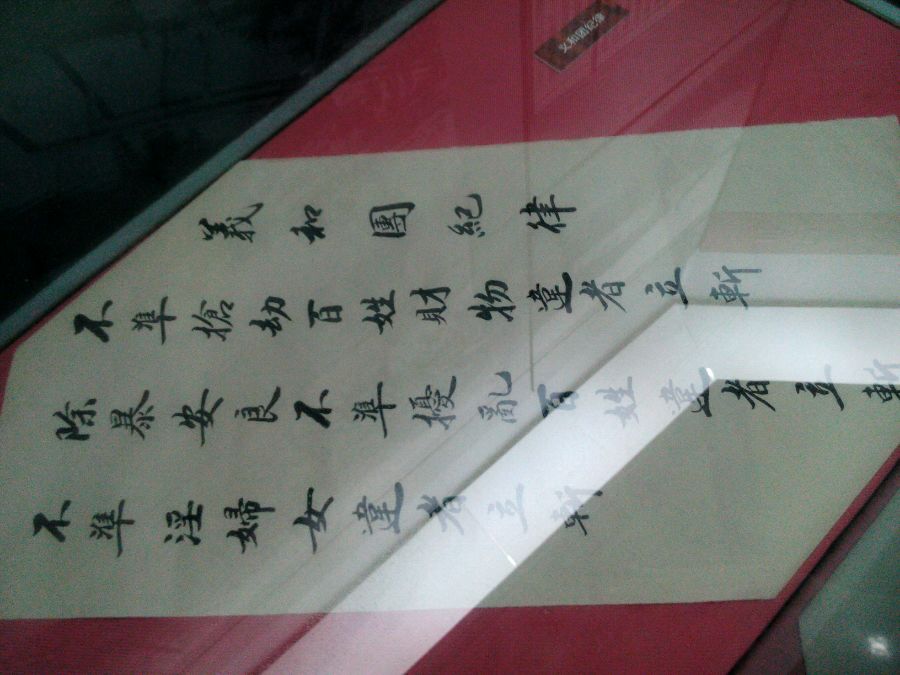 義和團紀律
不準搶劫百姓財物違者立斬
除暴安良不準擾亂百姓違者立斬
不準淫婦女違者立斬